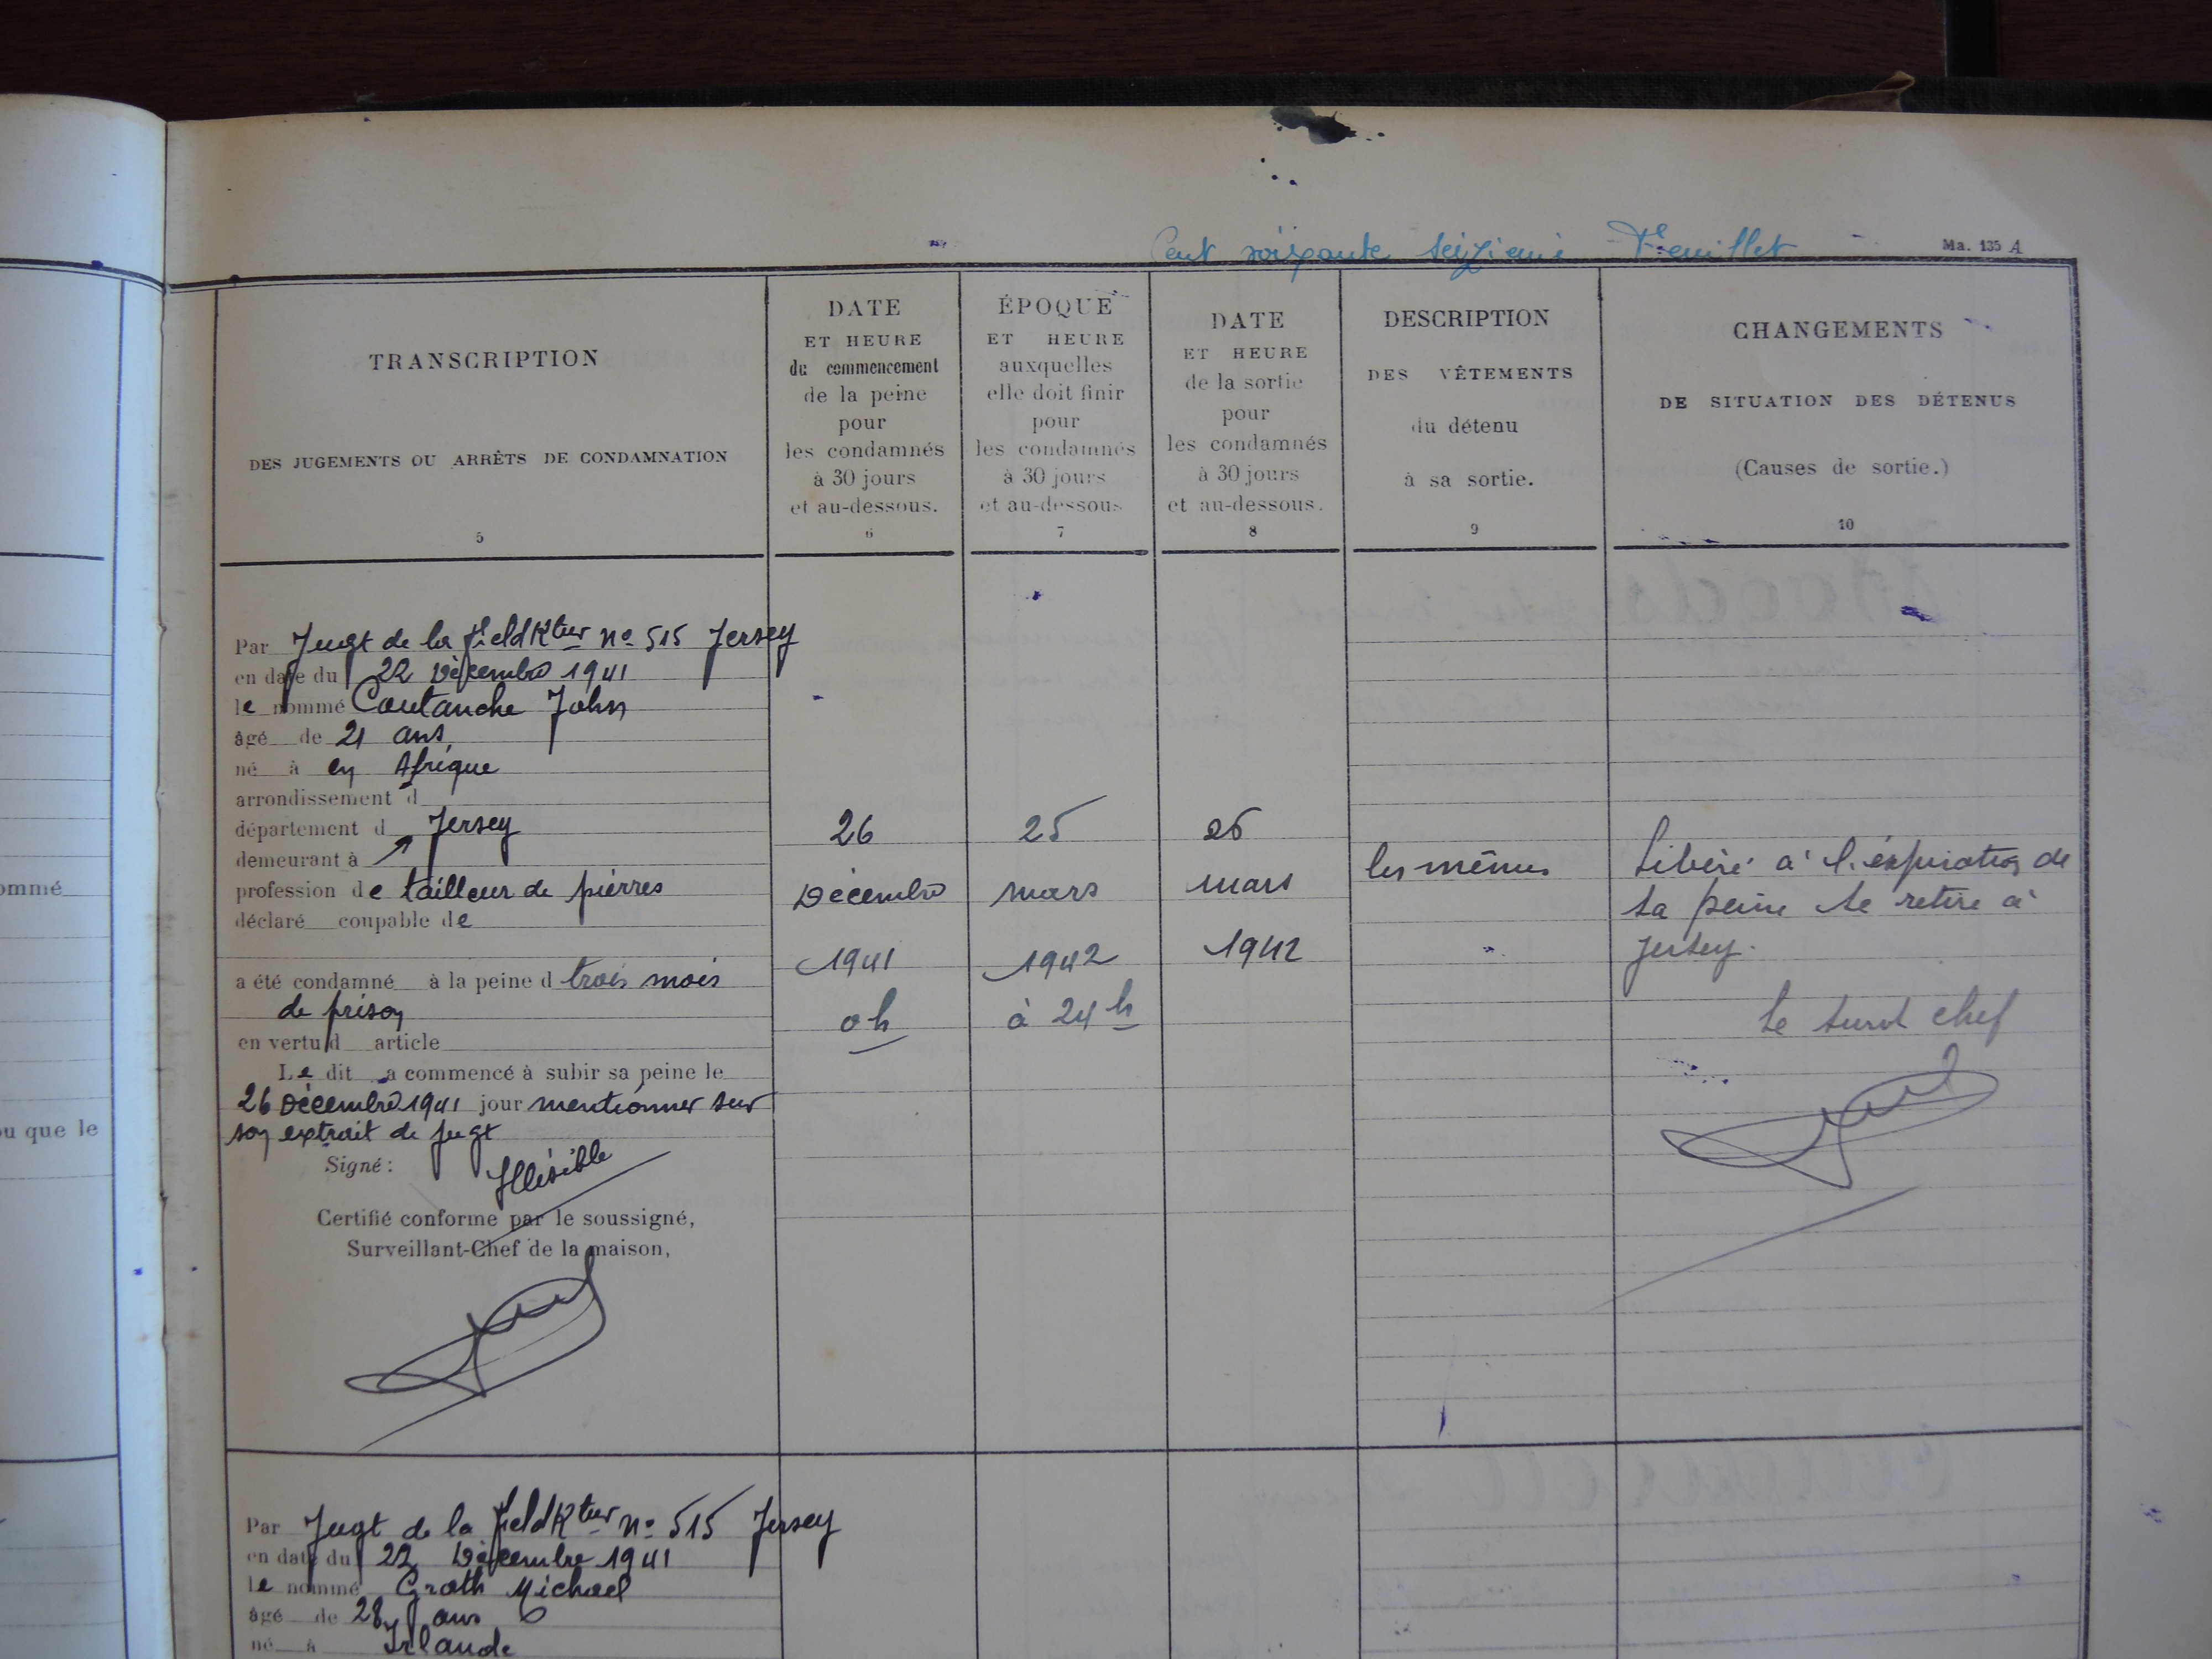 Cent soixante seizième Feuillet
Ma. 135 A
TRANSCRIPTION
DES JUGEMENTS OU ARRÊTS DE CONDAMNATION
5
DATE
ET HEURE
du commencement
de la peine
pour
les condamnés
à 30 jours
et au-dessous.
6
ÉPOQUE
ET HEURE
auxquelles
elle doit finir
pour
les condamnés
à 30 jours
et au-dessous
7
DATE
ET HEURE
de la sortie
pour
les condamnés
à 30 jours
et au-dessous.
8
DESCRIPTION
DES VÊTEMENTS
du détenu
à sa sortie.
9
CHANGEMENTS
DE SITUATION DES DÉTENUS
(Causes de sortie.)
10
Par Jugt de la FieldKtur no 515 Jersey
en date du 22 Décembre 1941
le nommé Coutanche John
âgé de 21 ans
né à en Afrique
arrondissement d
département d Jersey
demeurant à
profession de tailleur de pierres
déclaré coupable de
a été condamné à la peine d trois mois
de prison
en vertu d article
Le dit a commencé à subir sa peine le
26 Décembre 1941 jour mentionner sur
son extrait de Jugt
Signé : Illisible
Certifié conforme par le soussigné,
Surveillant-Chef de la maison,
26
Décembre
1941
0 h
25
mars
1942
à 24 h
mars
1942
les mêmes
Libéré à l'expiration de
sa peine se retire à
Jersey.
Le survt chef
ommé
ou que le
Par Jugt de la FieldKtur no 515 Jersey
en date du 22 Décembre 1941
le nommé Grath Michael
âgé de 28 ans
né à Irlande